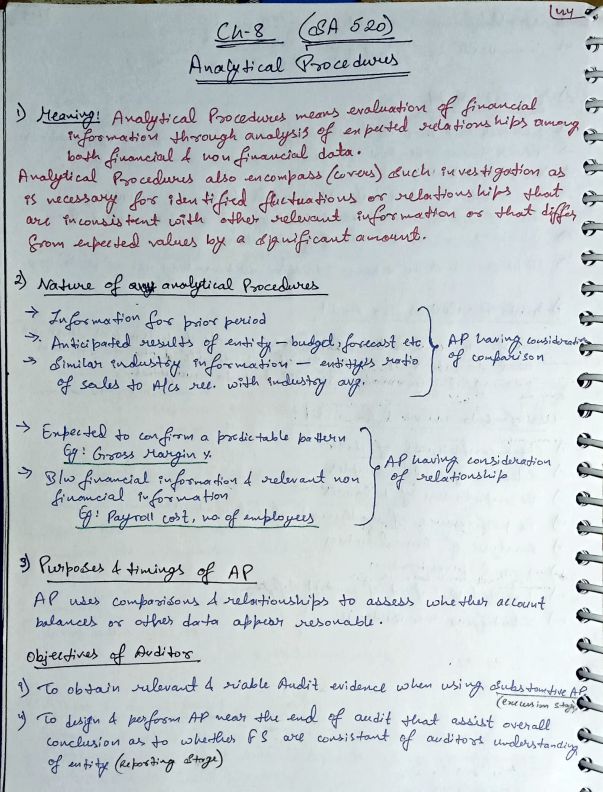 144
Ch-8 (SA 520)
Analytical Procedures
1) Meaning: Analytical Procedures means evaluation of financial
information through analysis of expected relationships among
both financial & non financial data.
Analytical Procedures also encompass (covers) such investigation as
is necessary for identified fluctuations or relationships that
are inconsistent with other relevant information or that differ
from expected values by a significant amount.
2) Nature of analytical Procedures
→ Information for prior period
→ Anticipated results of entity – budget, forecast etc.
→ Similar industry information – entity's ratio
of sales to A/cs rec. with industry avg.
AP having consideration
of comparison
→ Expected to confirm a predictable pattern
Eg: Gross Margin %
→ B/w financial information & relevant non
financial information
Eg: Payroll cost, no. of employees
AP having consideration
of relationship
3) Purposes & timings of AP
AP uses comparisons & relationships to assess whether account
balances or other data appear resonable.
Objectives of Auditor
1) To obtain relevant & riable Audit evidence when using substantive AP
(excusion stage)
4) To design & perform AP near the end of audit that assist overall
conclusion as to whether FS are consistant of auditors understanding
of entity (Reporting stage)